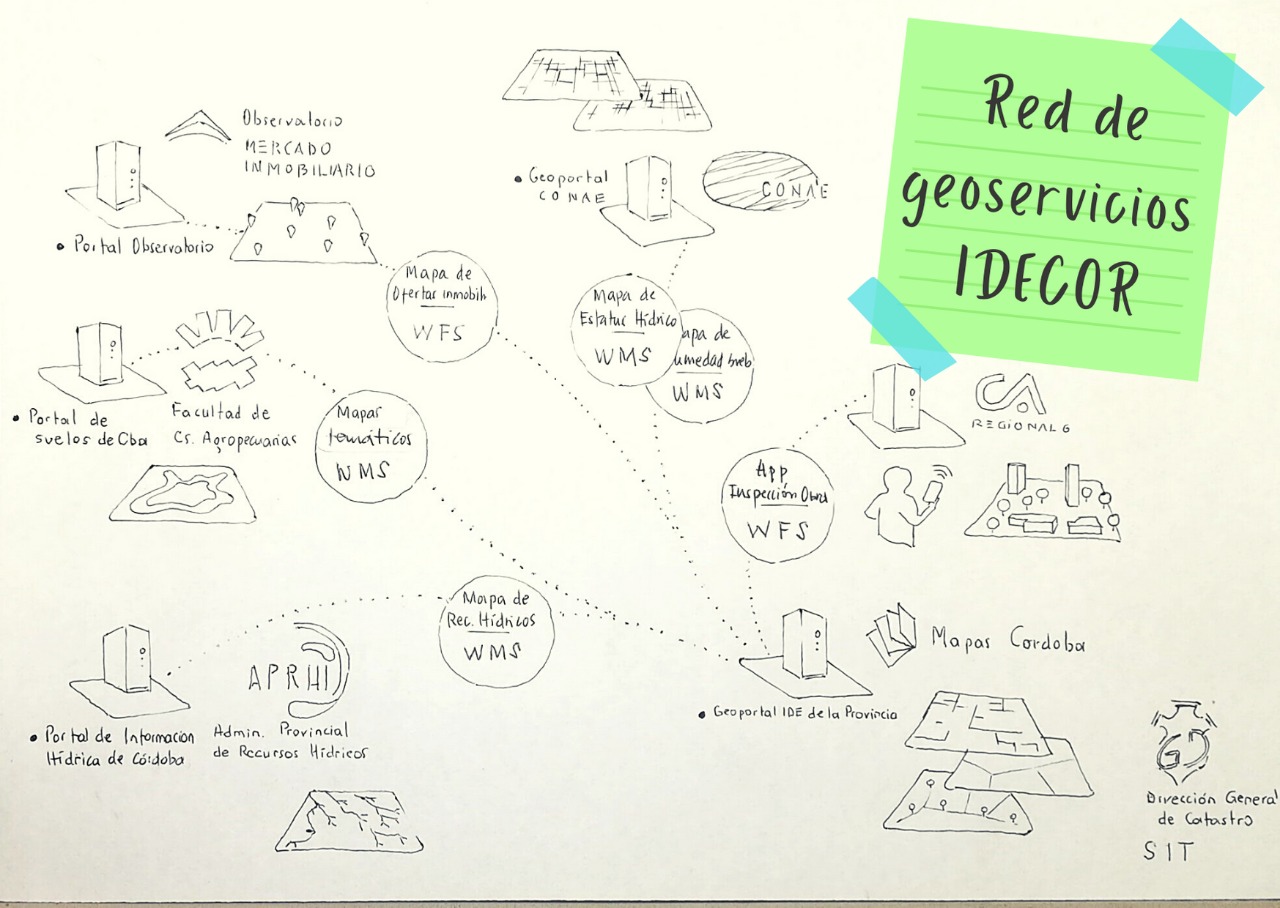 Red de
geoservicios
IDECOR
Observatorio
MERCADO
INMOBILIARIO
• Portal Observatorio
Mapa de
Ofertas inmobili
WFS
• Geoportal
CONAE
CONAE
Mapa de
Estatus Hídrico
WMS
apa de
umedad
WMS
• Portal de
suelos de Cba
Facultad de
Cs. Agropecuarias
Mapas
temáticos
WMS
CA
REGIONAL 6
App
Inspección Obras
WFS
Mapa de
Rec. Hídricos
WMS
APRHI
• Portal de Informacion
Hídrica de Córdoba
Admin. Provincial
de Recursos Hídricos
Mapas Cordoba
• Geoportal IDE de la Provincia
Dirección General
de Catastro
SIT